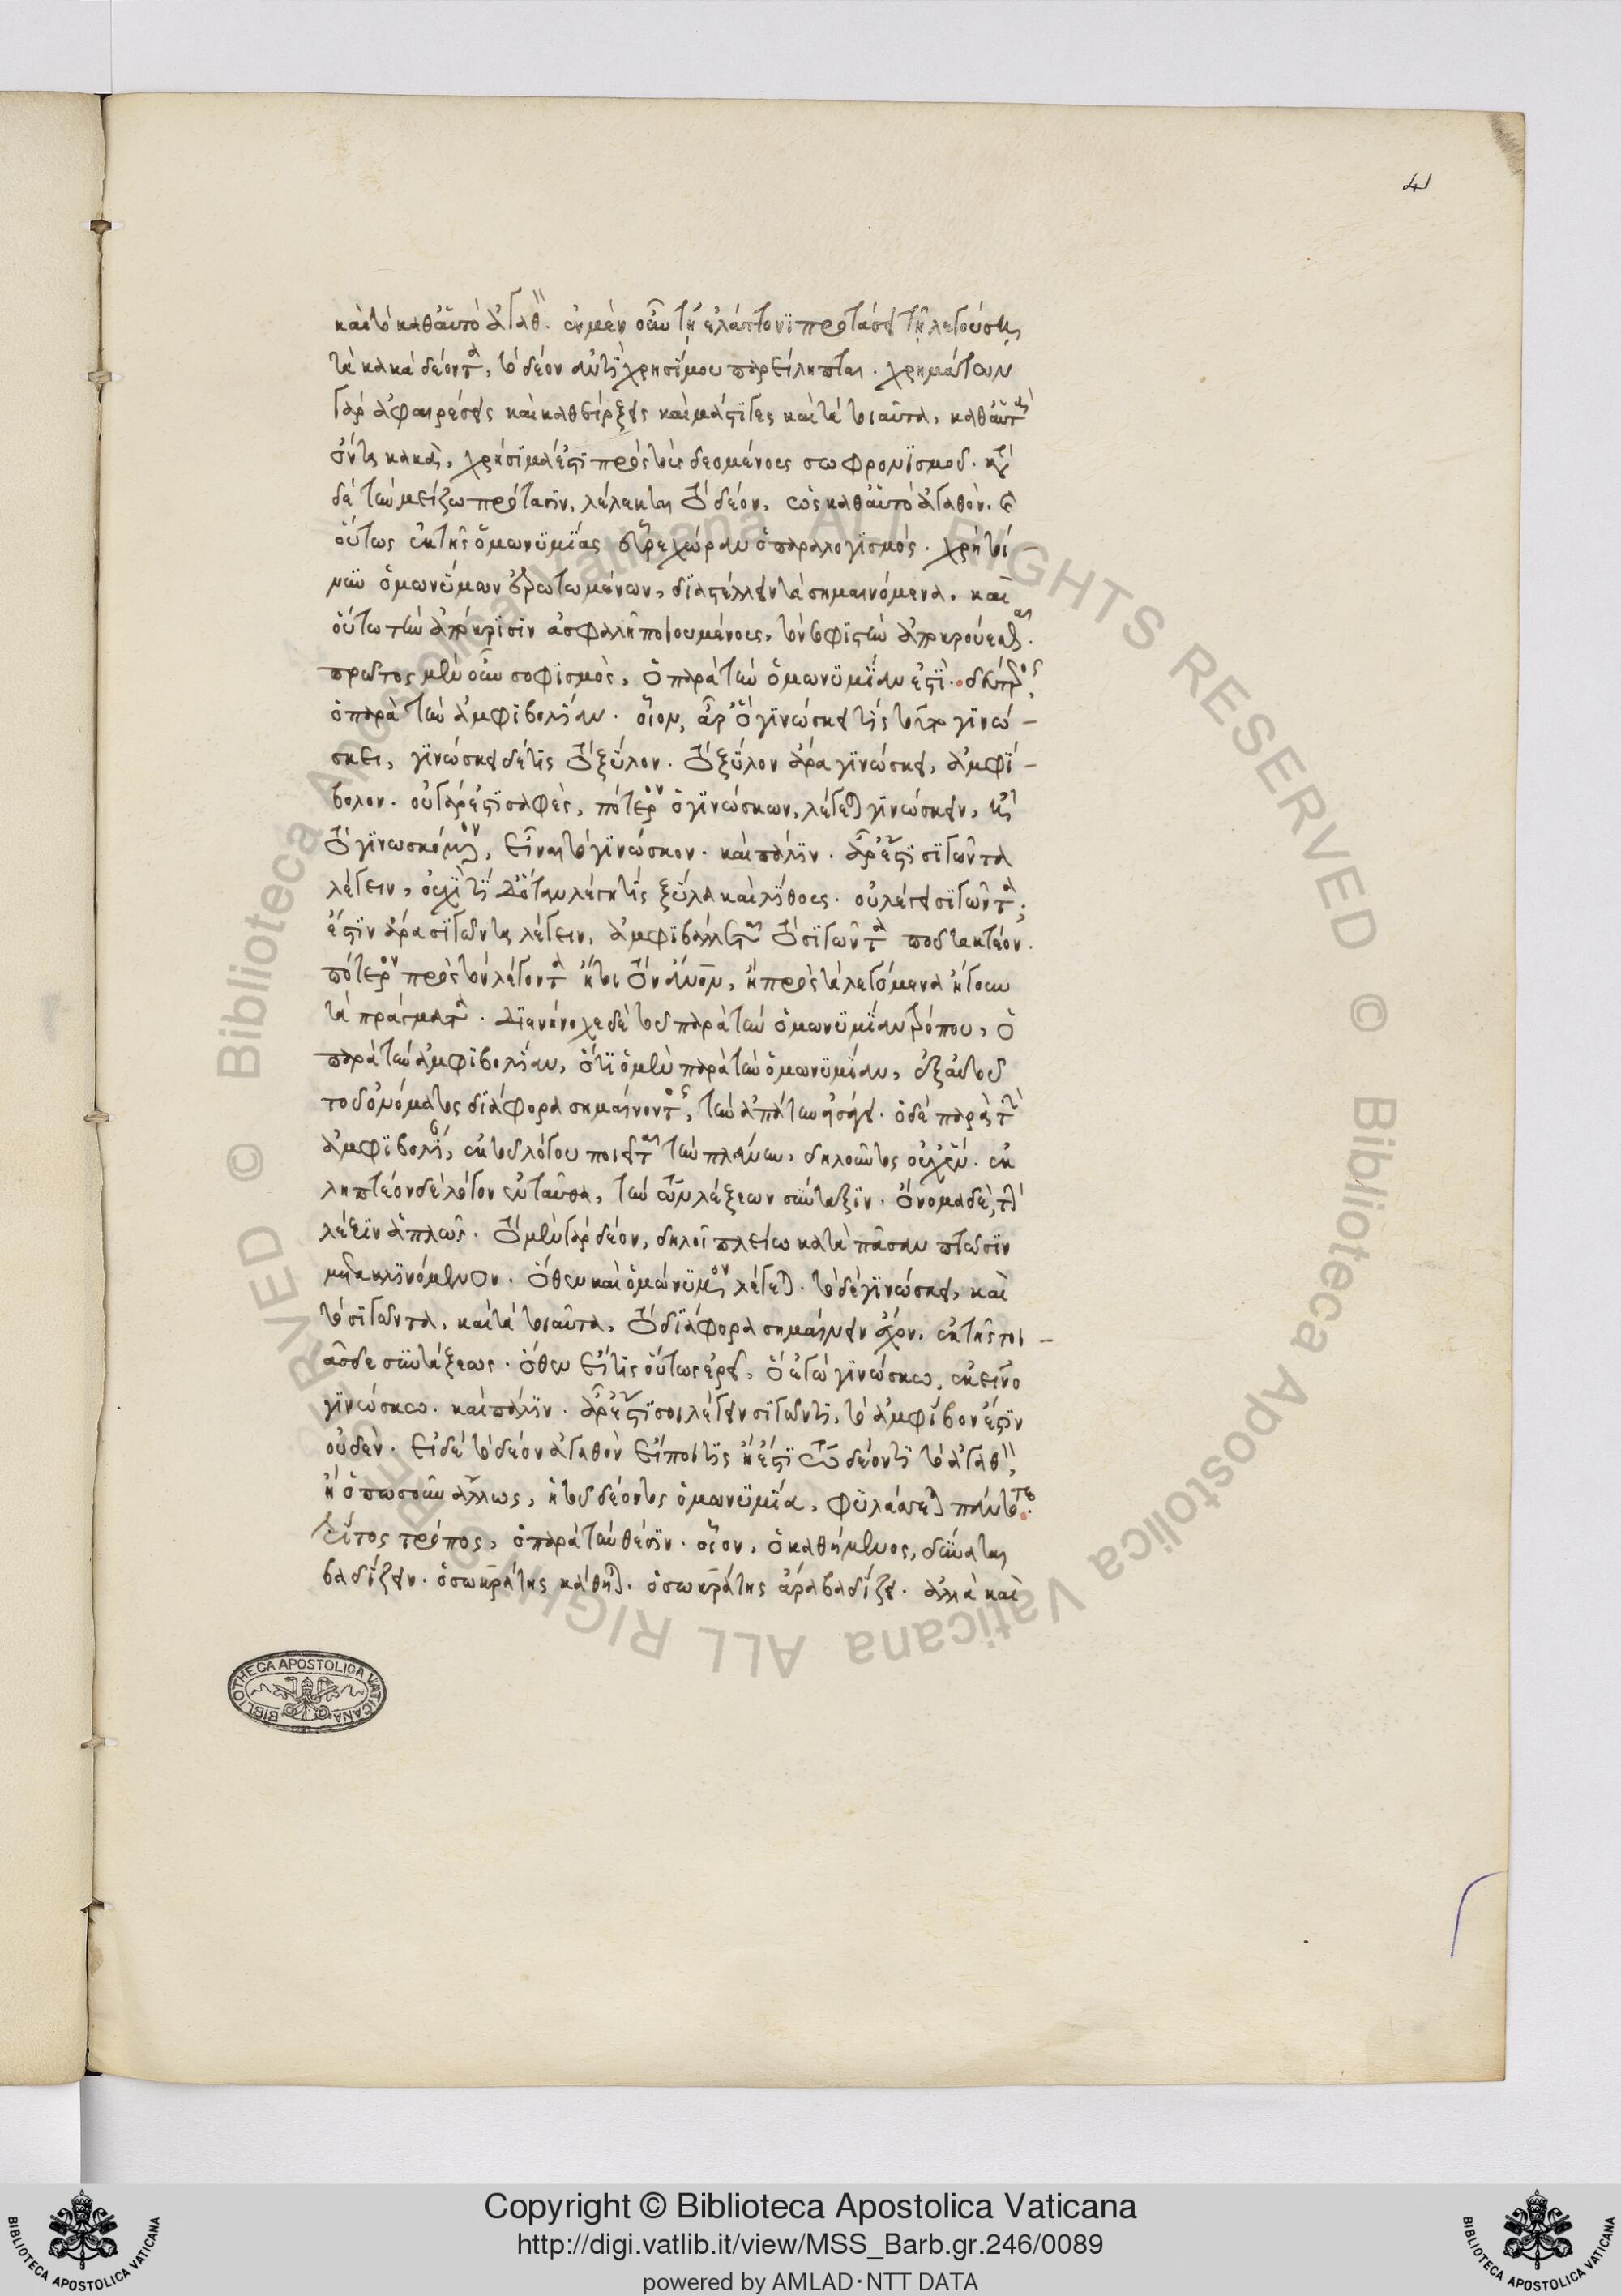 41
καὶ τὸ καθαὑτὸ ἀγαθ. ἐν μὲν οὖν τῇ ἐλάττονι προτάσει τῇ λεγούσῃ
τὰ κακὰ δέοντα, τὸ δέον ἀντὶ χρησίμου παρείληπται. χρημάτων
γὰρ ἀφαιρέσεις καὶ καθείρξεις καὶ μάστιγες καὶ τὰ τοιαῦτα, καθαὑτὰ
ὄντα κακὰ, χρήσιμά ἐστι πρὸς τοὺς δεομένους σωφρονισμοῦ. κατὰ
δὲ τὴν μείζω πρότασιν, λέλεκται τὸ δέον, ὡς καθαὑτὸ ἀγαθόν. καὶ
οὕτως ἐκ τῆς ὁμωνυμίας εὗρε χώραν ὁ παραλογισμός. χρὴ τοί
νυν ὁμωνύμων ἐρωτωμένων, διαστέλλειν τὰ σημαινόμενα. καὶ
οὕτω τὴν ἀπόκρισιν ἀσφαλῆ ποιουμένους, τὸν σοφιστὴν ἀποκρούεσθαι.
πρῶτος μὲν οὖν σοφισμὸς, ὁ παρὰ τὴν ὁμωνυμίαν ἐστί. δεύτερος
ὁ παρὰ τὴν ἀμφιβολίαν. οἷον, ἆρ' ὃ γινώσκει τίς τοῦτο γινώ-
σκει, γινώσκει δέ τις τὸ ξύλον. τὸ ξύλον ἄρα γινώσκει, ἀμφί-
βολον. οὐ γάρ ἐστι σαφὲς, πότερον ὁ γινώσκων, λέγεται γινώσκειν, ἢ
τὸ γινωσκόμενον, εἶναι τὸ γινώσκον. καὶ πάλιν. ἆρ' ἔστι σιγῶντα
λέγειν, οὐχί τί δ' ὅταν λέγῃ τίς ξύλα καὶ λίθους. οὐ λέγει σιγῶντα;
ἔστιν ἄρα σιγῶντα λέγειν, ἀμφιβάλλεται τὸ σιγῶντα ποῦ τακτέον.
πότερον πρὸς τὸν λέγοντα ἤτοι τὸν ἄνον, ἢ πρὸς τὰ λεγόμενα ἤγουν
τὰ πράγματα. διενήνοχε δὲ τοῦ παρὰ τὴν ὁμωνυμίαν τρόπου, ὁ
παρὰ τὴν ἀμφιβολίαν, ὅτι ὁ μὲν παρὰ τὴν ὁμωνυμίαν, ἐξ αὐτοῦ
τοῦ ὀνόματος διάφορα σημαίνοντος, τὴν ἀπάτην εἰσάγει. ὁ δὲ παρὰ τὴν
ἀμφιβολί, ἐκ τοῦ λόγου ποιεῖται τὴν πλάνην, δηλοῦντος οὐχ ἕν. ἐκ
ληπτέον δὲ λόγον ἐνταῦθα, τὴν τῶν λέξεων σύνταξιν. ὄνομα δὲ, τὴν
λέξιν ἁπλῶς. τὸ μὲν γὰρ δέον, δηλοῖ πλείω κατὰ πᾶσαν πτῶσιν
μετακλινόμενον. ὅθεν καὶ ὁμώνυμον λέγεται. τὸ δὲ γινώσκει, καὶ
τὸ σιγῶντα, καὶ τὰ τοιαῦτα, τὸ διάφορα σημαίνειν ἔχον, ἐκ τῆς τοι-
ᾶσδε συντάξεως. ὅθεν εἴ τις οὕτως ἐρεῖ, ὃ ἐγὼ γινώσκω, ἐκεῖνο
γινώσκω. καὶ πάλιν. ἆρ' ἔστι σοι λέγειν σιγῶντι, τὸ ἀμφίβον ἐστιν
οὐδέν. εἰ δὲ τὸ δέον ἀγαθὸν εἴποι τις ἢ ἔστι τῷ δέοντι τὸ ἀγαθ,
ἢ ὁπωσοῦν ἄλλως, ἡ τοῦ δέοντος ὁμωνυμία, φυλάσσεται πάντοτε.
τρίτος τρόπος, ὁ παρὰ τὴν θέσιν. οἷον, ὁ καθήμενος, δύναται
βαδίζειν. ὁ σωκράτης κάθηται. ὁ σωκράτης ἄρα βαδίζει. ἀλλὰ καὶ
BIBLIOTHECA APOSTOLICA VATICANA
© Biblioteca Apostolica Vaticana ALL RIGHTS RESERVED © Biblioteca Apostolica Vaticana ALL RIGHTS RESERVED
Copyright © Biblioteca Apostolica Vaticana
http://digi.vatlib.it/view/MSS_Barb.gr.246/0089
powered by AMLAD·NTT DATA
BIBLIOTECA APOSTOLICA VATICANA
BIBLIOTECA APOSTOLICA VATICANA